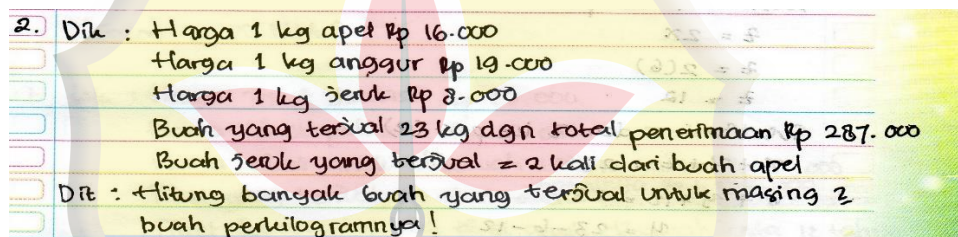 2. Dik : Harga 1 kg apel Rp 16.000
Harga 1 kg anggur Rp 19.000
Harga 1 kg jeruk Rp 8.000
Buah yang terjual 23 kg dgn total penerimaan Rp 287.000
Buah jeruk yang terjual = 2 kali dari buah apel
Dit : Hitung banyak buah yang terjual untuk masing 2
buah perkilogramnya!